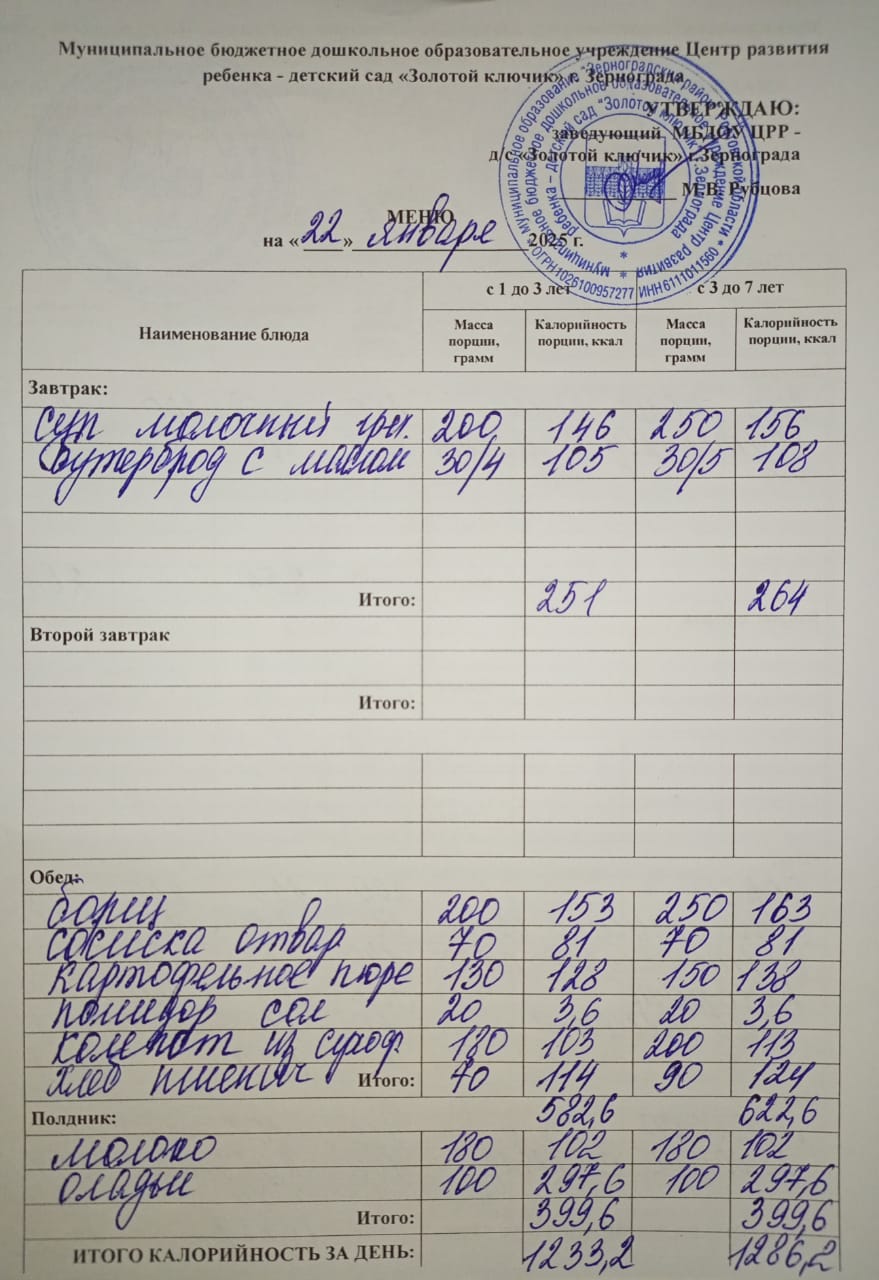 Муниципальное бюджетное дошкольное образовательное учреждение Центр развития
ребенка - детский сад «Золотой ключик» г. Зернограда
УТВЕРЖДАЮ:
заведующий МБДОУ ЦРР -
д/с «Золотой ключик» г.Зернограда
М.В. Рубцова
МЕНЮ
на «22» января 2025 г.
ОГРН 1026100957277 ИНН 6111011560
Наименование блюда с 1 до 3 лет с 3 до 7 лет
Масса порции, грамм Калорийность порции, ккал Масса порции, грамм Калорийность порции, ккал
Завтрак:
суп молочный греч. 200 146 250 156
бутерброд с маслом 30/4 105 30/5 108
Итого: 251 264
Второй завтрак
Итого:
Обед:
борщ 200 153 250 163
сосиска отвар 70 81 70 81
картофельное пюре 130 128 150 138
помидор сол 20 3,6 20 3,6
компот из сухоф. 180 103 200 113
хлеб пшенич Итого: 70 114 90 124
Полдник: 582,6 622,6
молоко 180 102 180 102
оладьи 100 297,6 100 297,6
Итого: 399,6 399,6
ИТОГО КАЛОРИЙНОСТЬ ЗА ДЕНЬ: 1233,2 1286,2